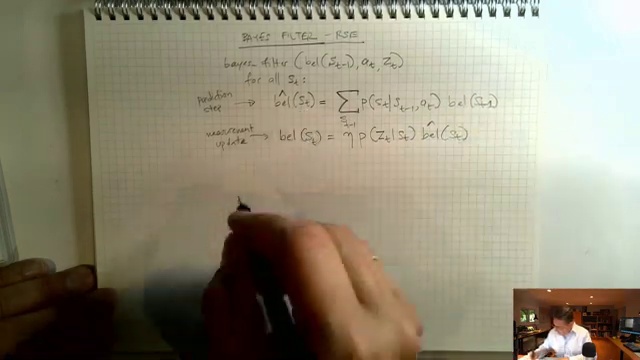 BAYES FILTER - RSE
bayes filter (bel(s_{t-1}), a_t, z_t)
for all s_t:
prediction step → bel̂(s_t) = ∑_{s_{t-1}} p(s_t|s_{t-1}, a_t) bel(s_{t-1})
measurement update → bel(s_t) = η p(z_t|s_t) bel̂(s_t)